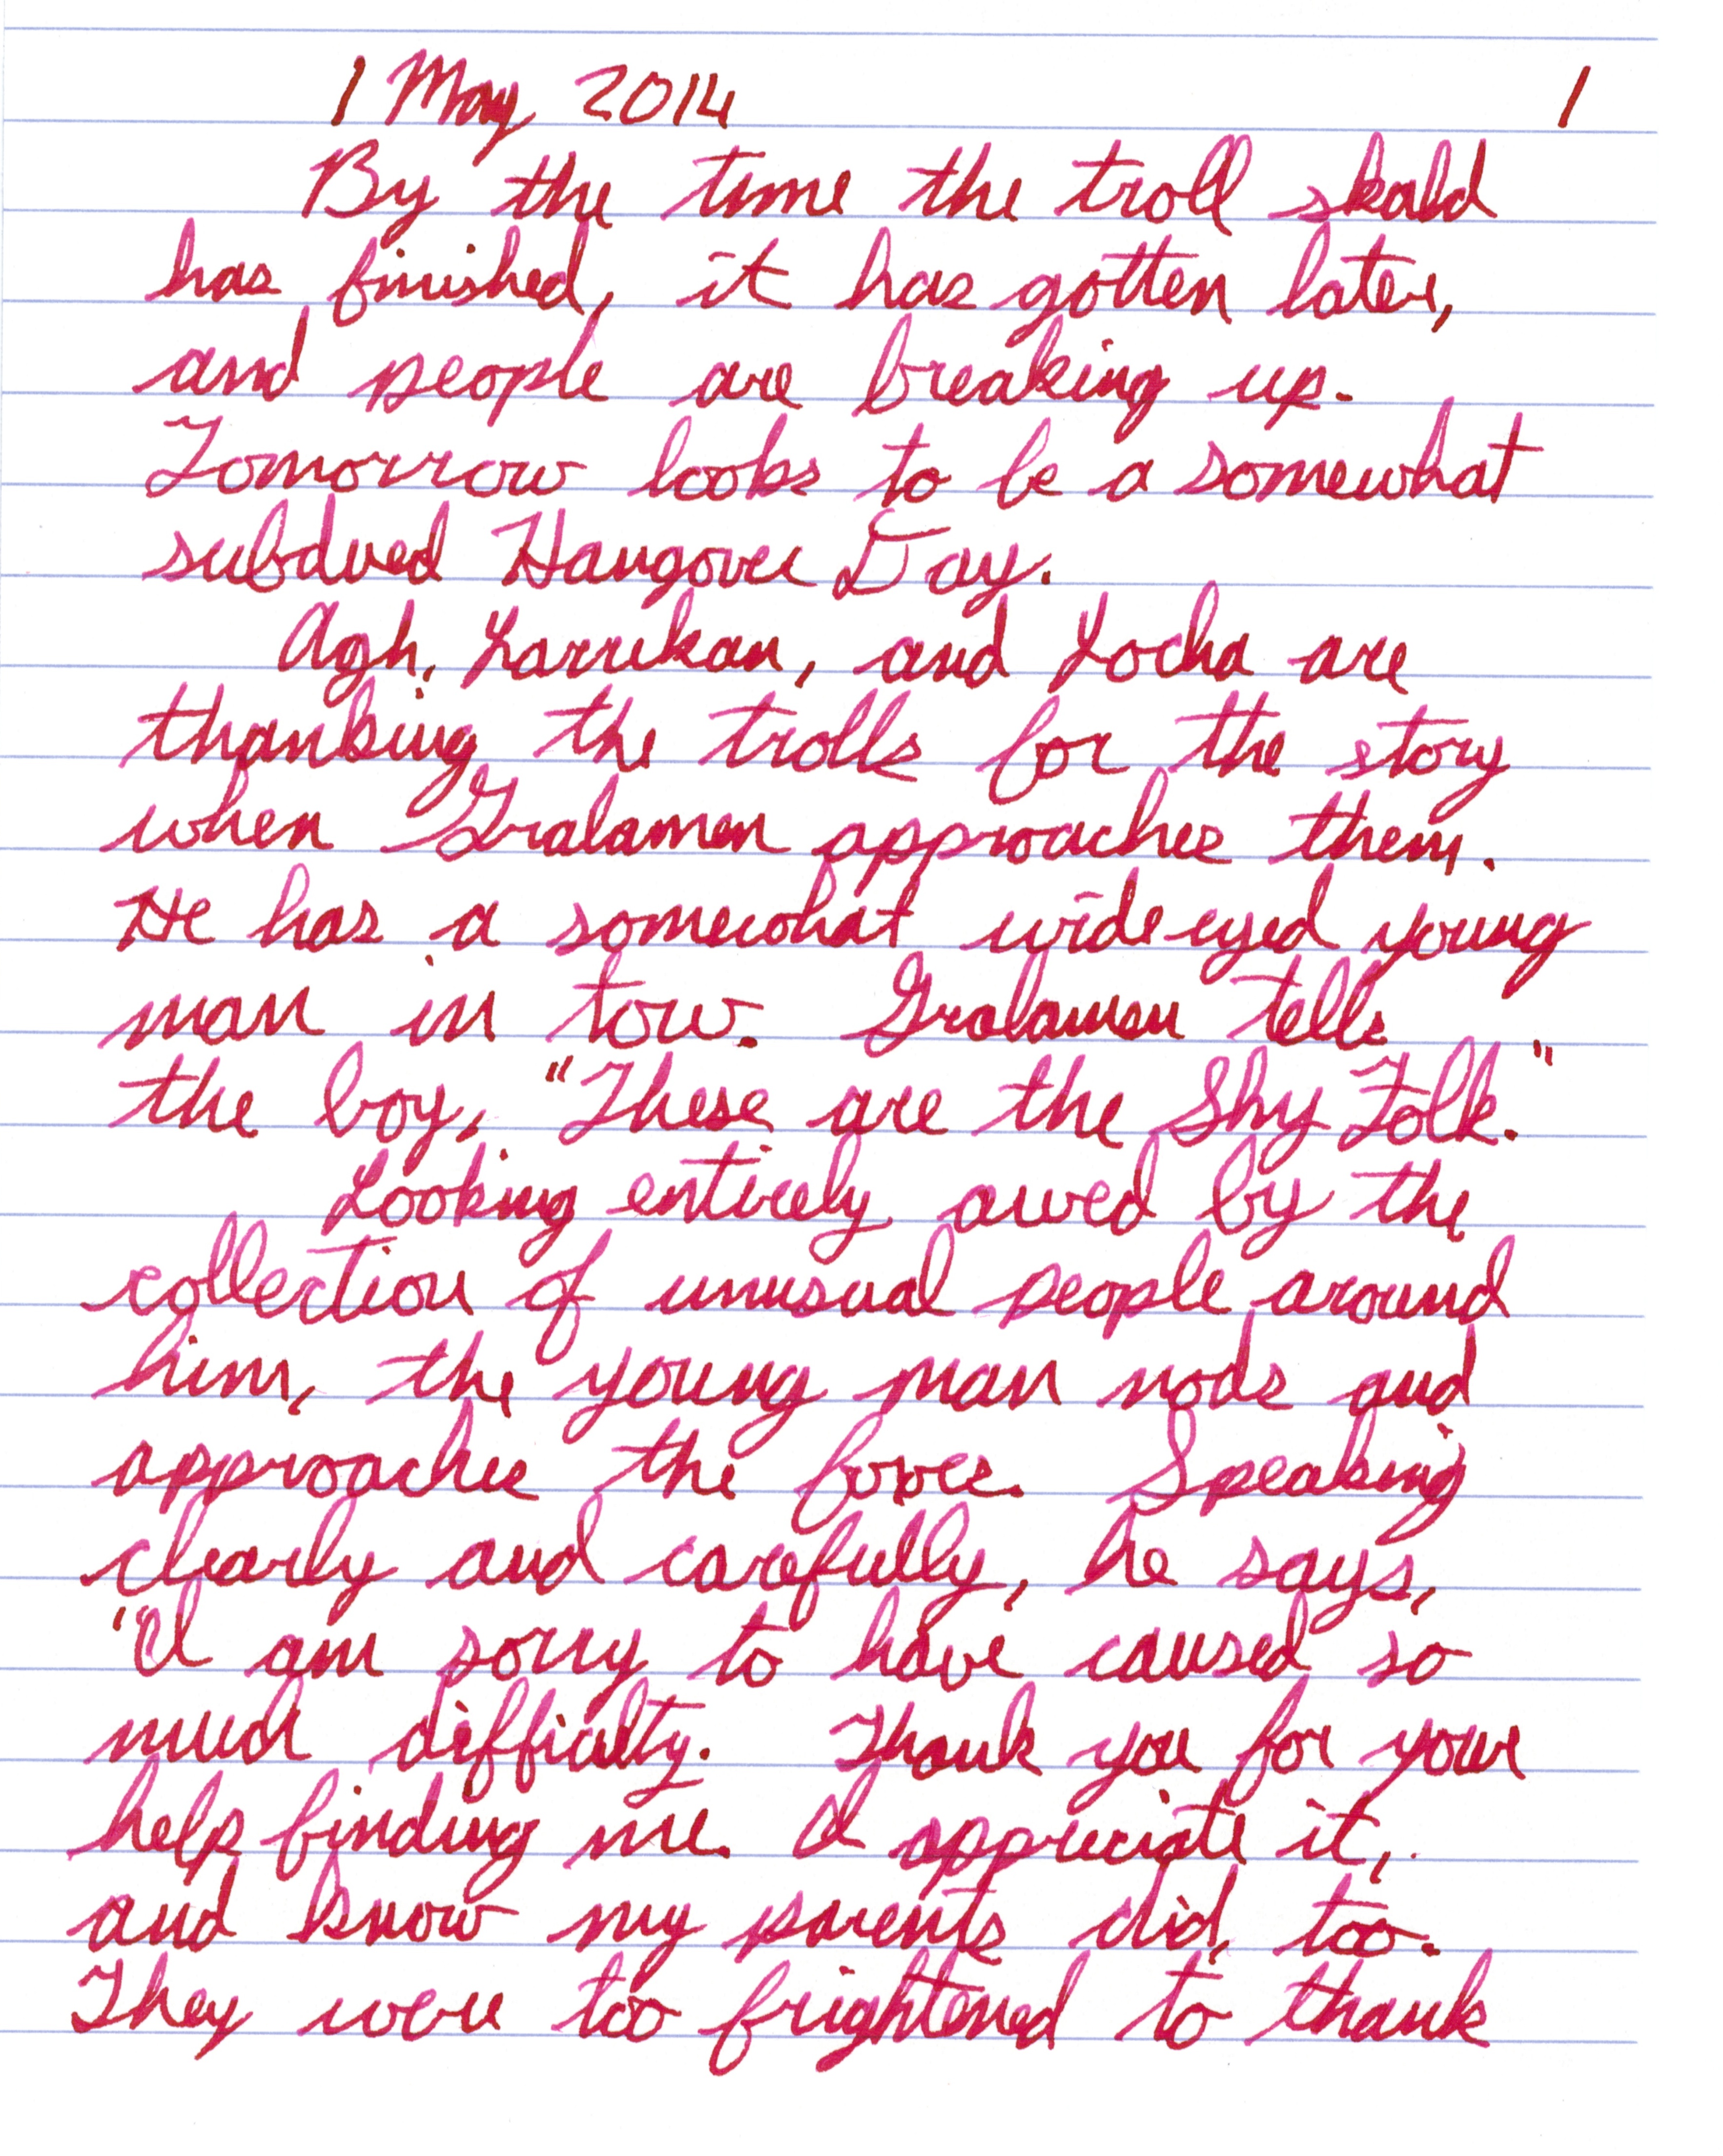 1 May 2014 1
By the time the troll skald
has finished, it has gotten later,
and people are breaking up.
Tomorrow looks to be a somewhat
subdued Hangover Day.
Agh, Larrikan, and Locha are
thanking the trolls for the story
when Gralamen approaches them.
He has a somewhat wide eyed young
man in tow. Gralamen tells
the boy, "These are the Shy Folk."
Looking entirely awed by the
collection of unusual people around
him, the young man nods and
approaches the foxes. Speaking
clearly and carefully, he says,
"I am sorry to have caused so
much difficulty. Thank you for your
help finding me. I appreciate it,
and know my parents did, too.
They were too frightened to thank